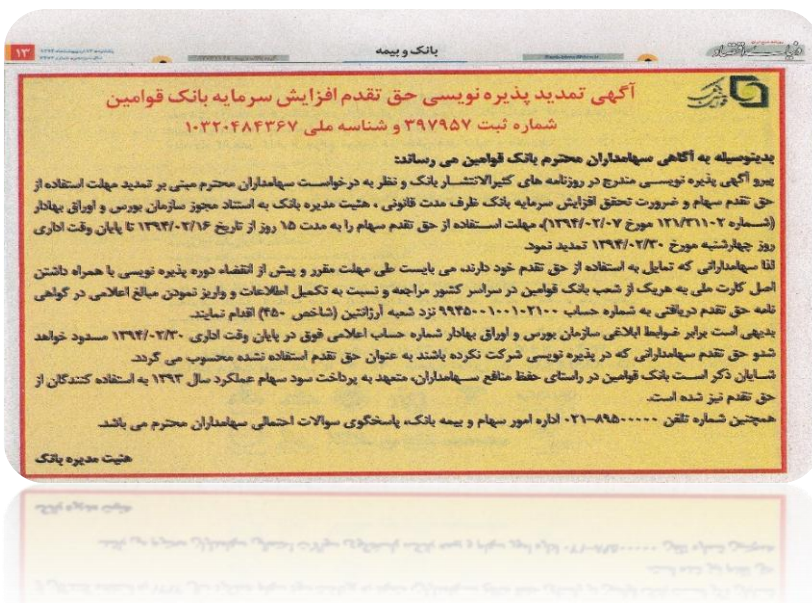 ۱۳
بانک و بیمه
آگهی تمدید پذیره نویسی حق تقدم افزایش سرمایه بانک قوامین
شماره ثبت ۳۹۷۹۵۷ و شناسه ملی ۱۰۳۲۰۴۸۴۳۶۷
بدینوسیله به آگاهی سهامداران محترم بانک قوامین می رساند:
پیرو آگهی پذیره نویسی مندرج در روزنامه های کثیرالانتشار بانک و نظر به درخواست سهامداران محترم مبنی بر تمدید مهلت استفاده از
حق تقدم سهام و ضرورت تحقق افزایش سرمایه بانک ظرف مدت قانونی ، هئیت مدیره بانک به استناد مجوز سازمان بورس و اوراق بهادار
(شماره ۱۲۱/۳۱۱۰۲ مورخ ۱۳۹۴/۰۲/۰۷)، مهلت استفاده از حق تقدم سهام را به مدت ۱۵ روز از تاریخ ۱۳۹۴/۰۲/۱۶ تا پایان وقت اداری
روز چهارشنبه مورخ ۱۳۹۴/۰۲/۳۰ تمدید نمود.
لذا سهامدارانی که تمایل به استفاده از حق تقدم خود دارند، می بایست طی مهلت مقرر و پیش از انقضاء دوره پذیره نویسی با همراه داشتن
اصل کارت ملی به هریک از شعب بانک قوامین در سراسر کشور مراجعه و نسبت به تکمیل اطلاعات و واریز نمودن مبالغ اعلامی در گواهی
نامه حق تقدم دریافتی به شماره حساب ۹۹۴۵۰۰۱۰۰۱۰۲۱۰۰ نزد شعبه آرژانتین (شاخص ۴۵۰) اقدام نمایند.
بدیهی است برابر ضوابط ابلاغی سازمان بورس و اوراق بهادار شماره حساب اعلامی فوق در پایان وقت اداری ۱۳۹۴/۰۲/۳۰ مسدود خواهد
شدو حق تقدم سهامدارانی که در پذیره نویسی شرکت نکرده باشند به عنوان حق تقدم استفاده نشده محسوب می گردد.
شایان ذکر است بانک قوامین در راستای حفظ منافع سهامداران، متعهد به پرداخت سود سهام عملکرد سال ۱۳۹۳ به استفاده کنندگان از
حق تقدم نیز شده است.
همچنین شماره تلفن ۸۹۵۰۰۰۰۰-۰۲۱ اداره امور سهام و بیمه بانک، پاسخگوی سوالات احتمالی سهامداران محترم می باشد.
هئیت مدیره بانک